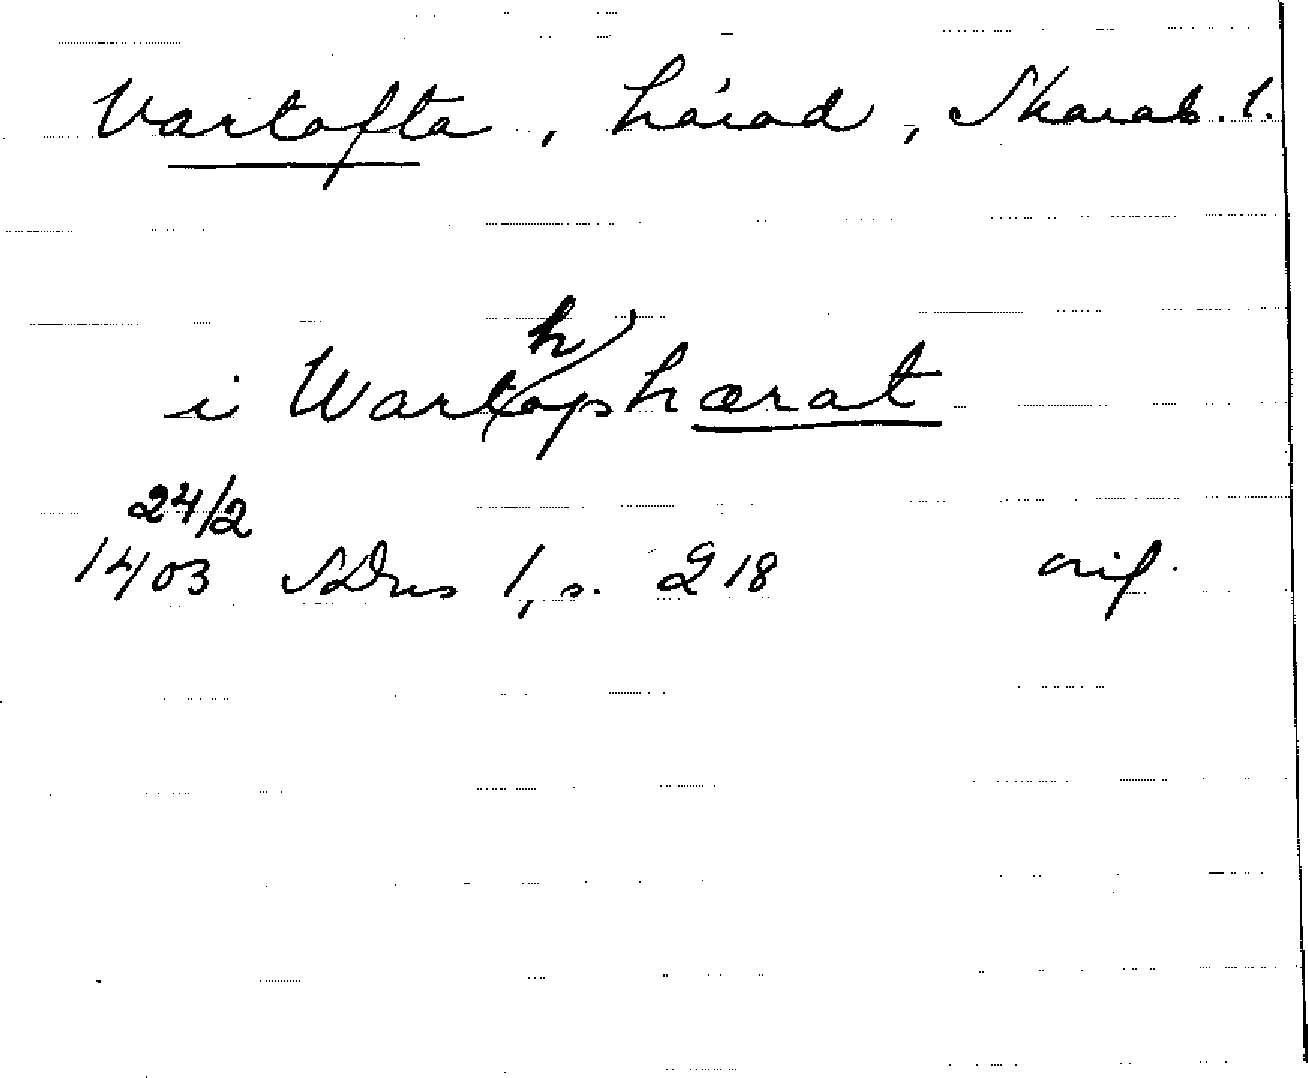 Vartofta, härad, Skarab. l.
h
i Wartophærat
24/2
1403 SDns 1, s. 218 orig.